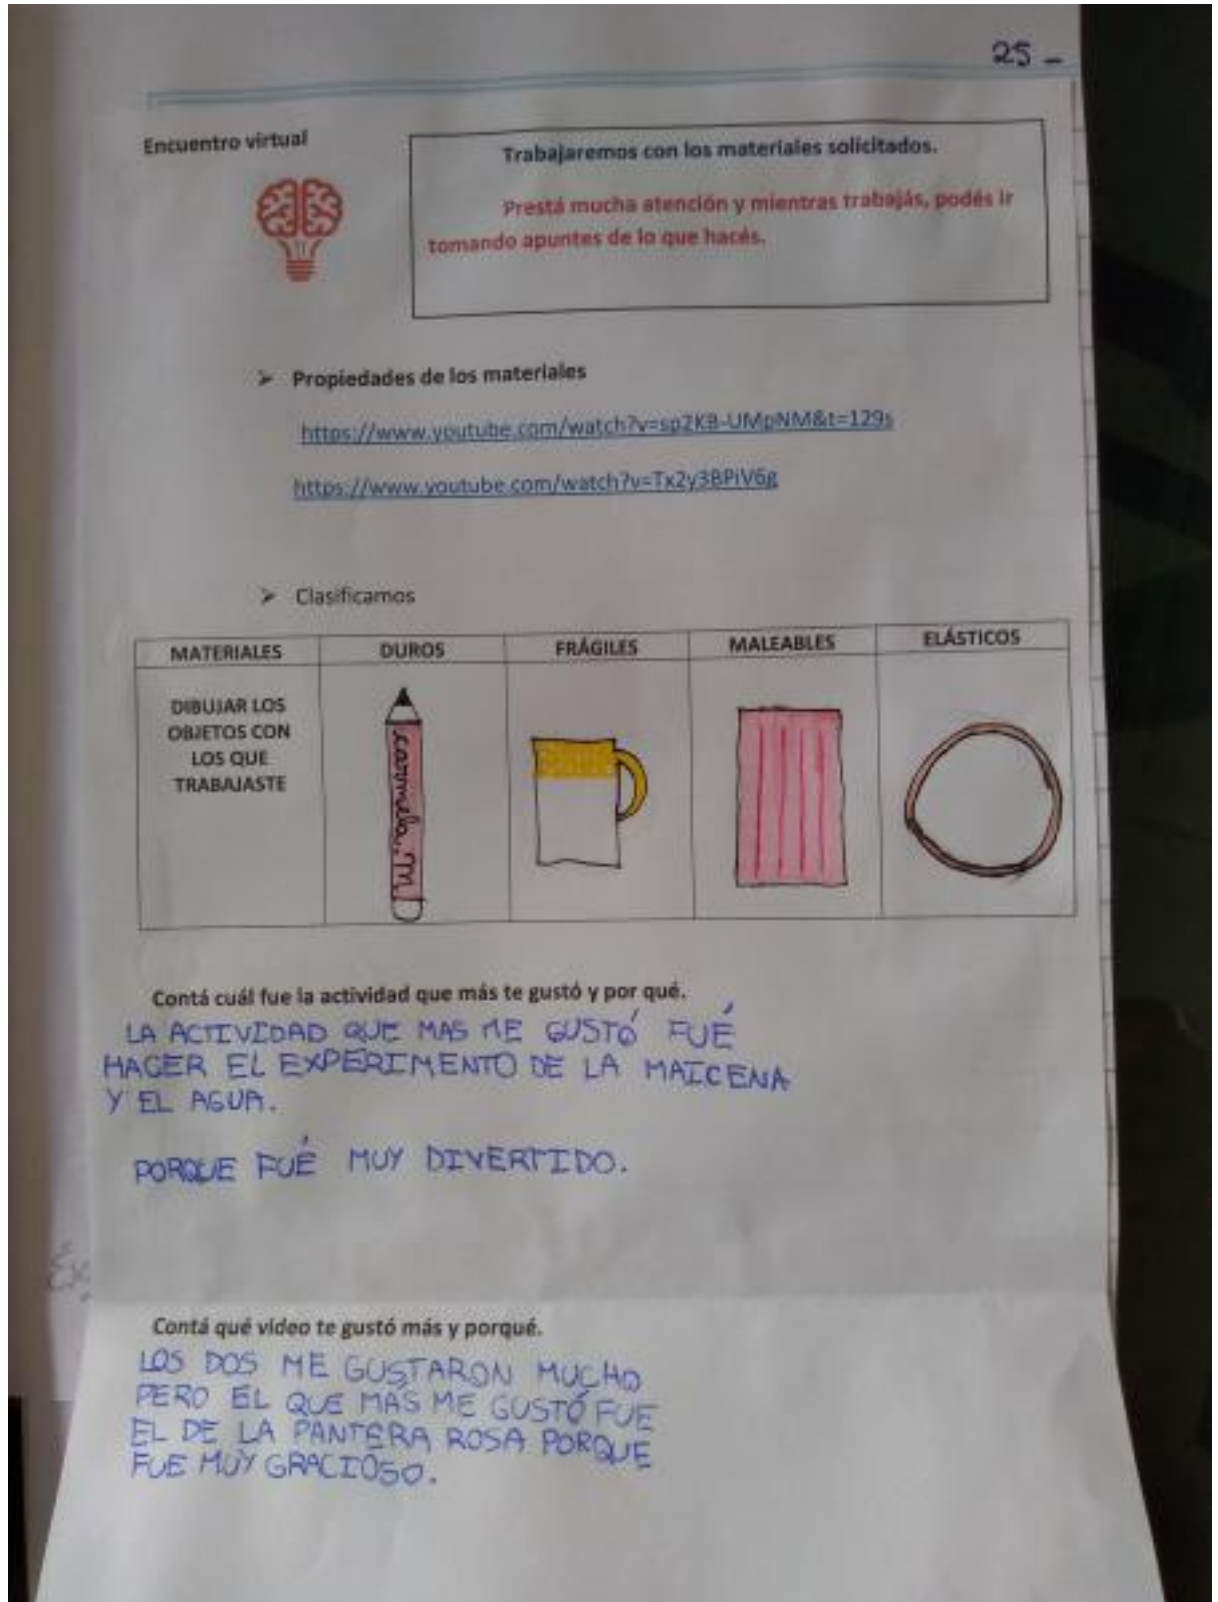 25 -
Encuentro virtual
Trabajaremos con los materiales solicitados.
Prestá mucha atención y mientras trabajás, podés ir
tomando apuntes de lo que hacés.
➢ Propiedades de los materiales
https://www.youtube.com/watch?v=sp2KB-UMpNM&t=129s
https://www.youtube.com/watch?v=Tx2y3BPiV6g
➢ Clasificamos
MATERIALES DUROS FRÁGILES MALEABLES ELÁSTICOS
DIBUJAR LOS
OBJETOS CON
LOS QUE
TRABAJASTE
carmela. m
Contá cuál fue la actividad que más te gustó y por qué.
LA ACTIVIDAD QUE MAS ME GUSTÓ FUÉ
HACER EL EXPERIMENTO DE LA MAICENA
Y EL AGUA.
PORQUE FUÉ MUY DIVERTIDO.
Contá qué video te gustó más y porqué.
LOS DOS ME GUSTARON MUCHO
PERO EL QUE MÁS ME GUSTÓ FUE
EL DE LA PANTERA ROSA PORQUE
FUE MUY GRACIOSO.